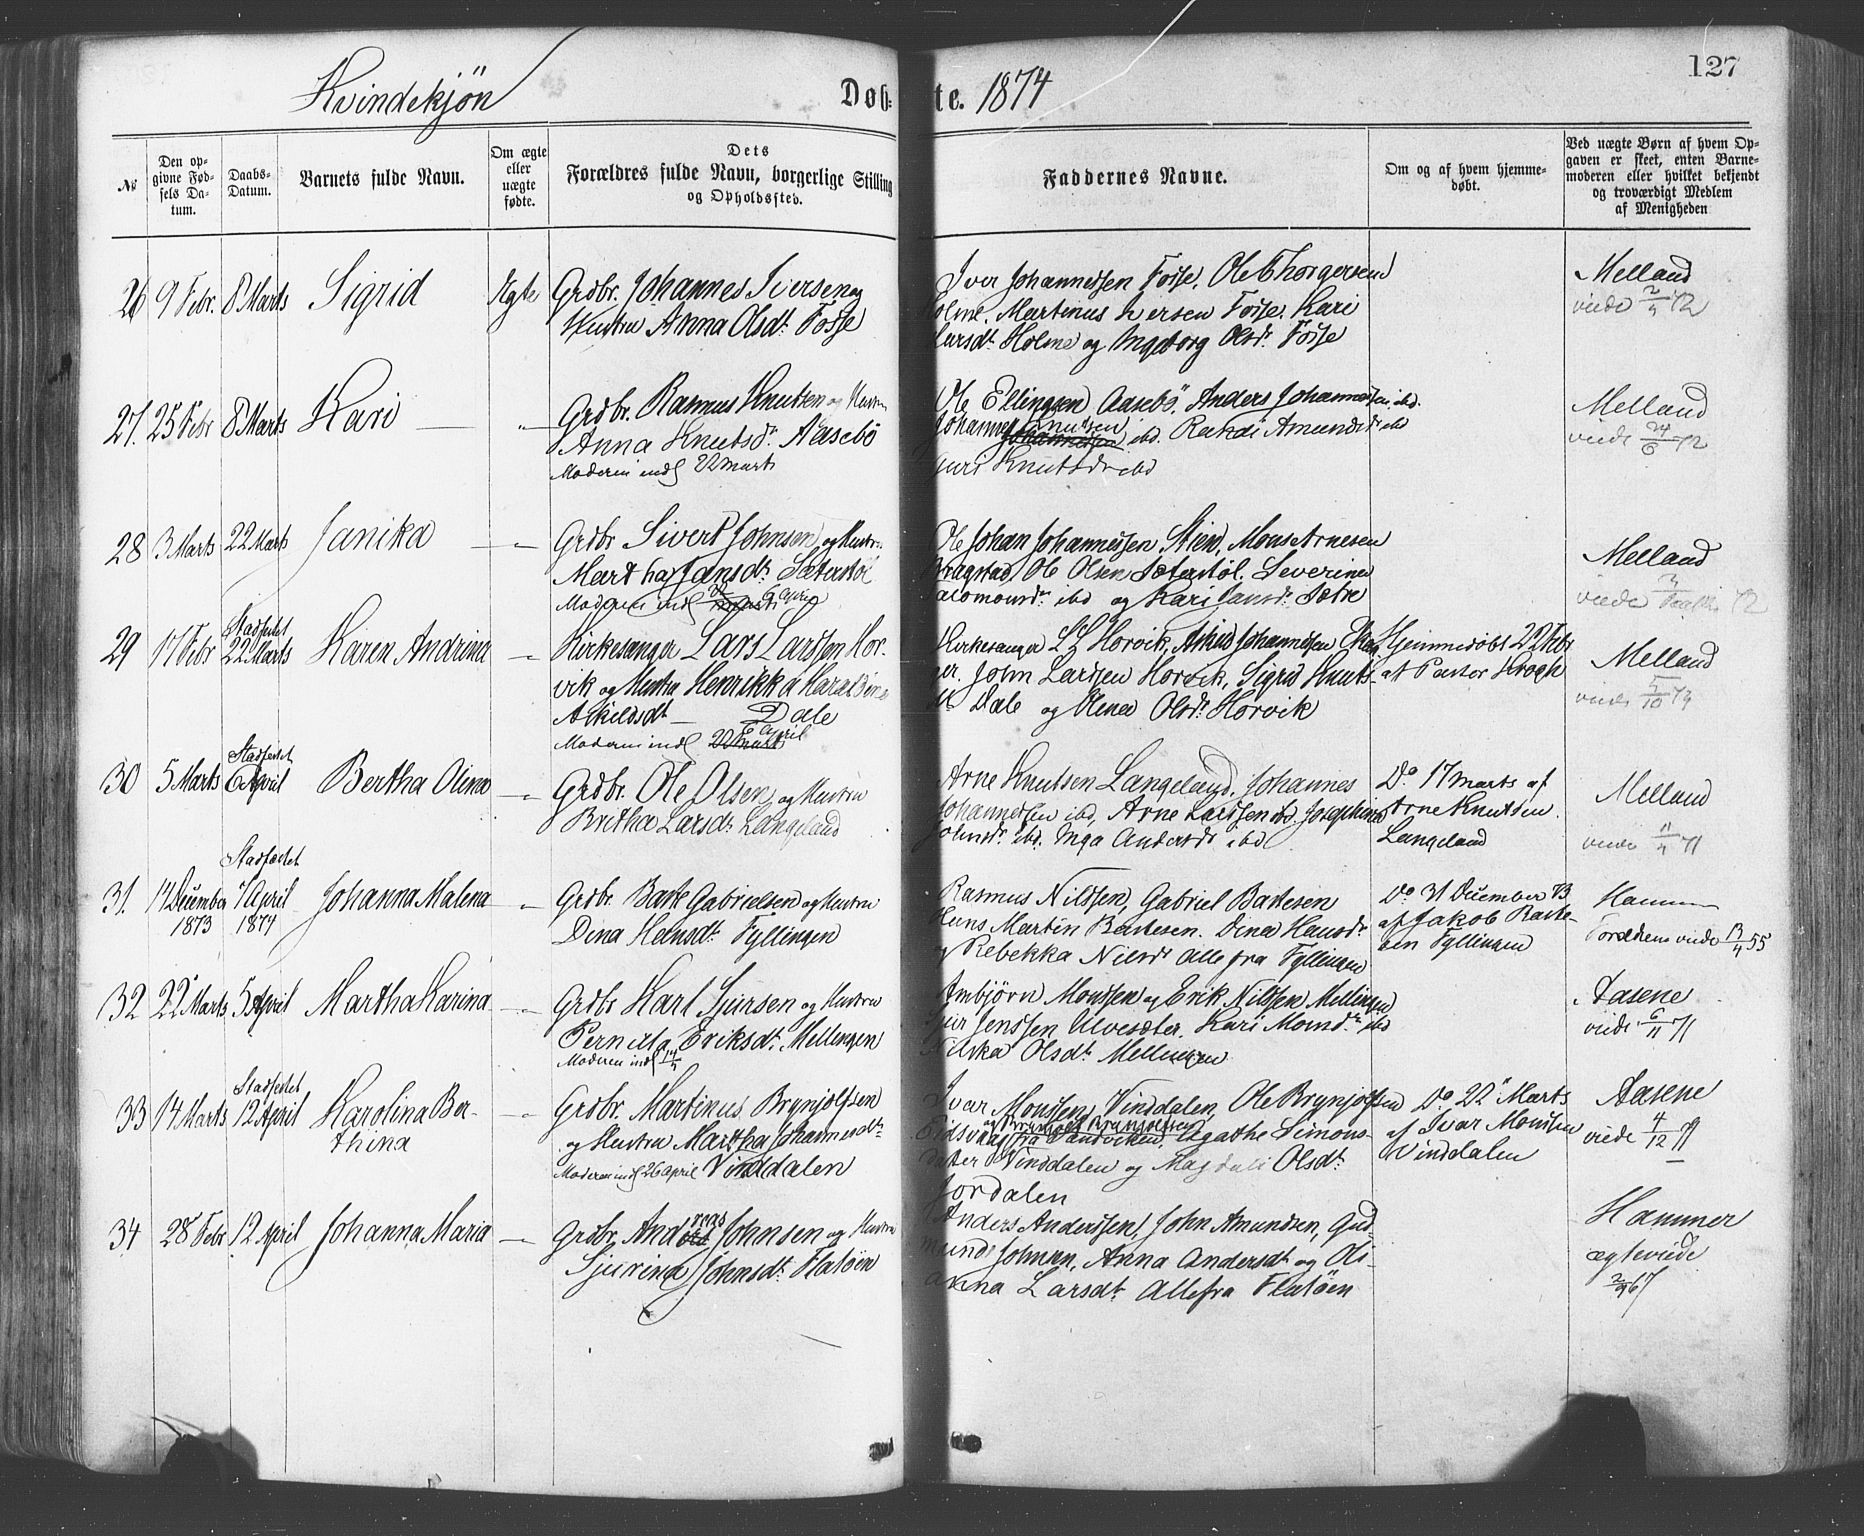 127
Kvindekjön
Døb-te. 1874
No
Den op-
givne Fød-
sels Da-
tum.
Daabs-
Datum.
Barnets fulde Navn.
Om ægte
eller
uægte
fødte.
Dets
Forældres fulde Navn, borgerlige Stilling
og Opholdssted.
Faddernes Navne.
Om og af hvem hjemme-
døbt.
Ved uægte Børn af hvem Op-
gaven er skeet, enten Barne-
moderen eller hvilket bekjendt
og troværdigt Medlem
af Menigheden
26 9 Febr. 8 Marts Sigrid Ægte
Grdbr. Johannes Iversen og
Hustru Anna Olsdt. Fosse
Iver Johannessen Fosse. Ole Thorgersen
Holme. Martinus Iversen Fosse. Kari
Larsdt. Holme og Ingeborg Olsdr. Fosse
Melland
viede 2/4 72
27. 25 Febr 8 Marts Kari — "—
Grdbr. Rasmus Knutsen og Hustru
Anna Knutsdr. Aasebö
Moderen indl 22 marts
Ole Ellingsen Aasebö. Anders Johannessen ibd.
Johannes Knutsen ibd. Randi Amundsdr ibd
Guri Knutsdr ibd
Melland
viede 24/6 72
28 3 Marts 22 Marts Janika — "—
Grdbr Sivert Johnsen og Hustru
Martha Jansdt. Sæterstøl
Moderen indl 6 april
Ole Johan Johannessen Stien, Mons Arnesen
Kragstad, Ole Olsen Sæterstøl. Severine
Salomonsdr ibd og Kari Jansdr. Sætre
Melland
viede 72
29 17 Febr Stadfestet 22 Marts Karen Andrina "—
Kirkesanger Lars Larssen Hor-
vik og Hustru Henrikka Haraldina
Askildsdt — Dale
Moderen indl 22 Mart 6 April
Kirkesanger L L Horvik, Johannessen
John Larssen Horvik, Sigrid Knuts-
dt Dale og Olena Olsdr. Horvik
Hjemmedöbt 22 Febr
af Pastor Krogh
Melland
viede 5/10 73
30 5 Marts Stadfestet 6 April Bertha Olina "—
Grdbr. Ole Olsen og Hustru
Britha Larsdt. Langeland
Arne Knutsen Langeland, Johannes
Johannessen ibd, Arne Larssen ibd. Josephina
Johnsdr. ibd. Inga Andersdr ibd
Do 17 marts af
Arne Knutsen
Langeland
Melland
viede 11/4 71
31. 14 December 1873 Stadfæstet 7 April 1874 Johanna Malena "—
Grdbr. Barke Gabrielsen og Hustru
Dina Hansdt. Fyllingen
Rasmus Nilssen, Gabriel Bakesen
Hans Martin Bakesen. Dina Hansdr
og Rebekka Nilsdr alle fra Fyllingen
Do 31 December 73
af Jakob Barke-
sen Fyllingen
Hammer
Forældrene viede 13/4 55
32 22 Marts 5 April Martha Karina "—
Grdbr Karl Sjursen og Hustru
Pernilla Eriksdt. Mellingen
Moderen indl 14/5
Ambjörn Monssen og Erik Nilssen Mellingen
Sjur Jenssen Ulvesæter. Kari Monsdr. ibd
Nilska Olsdt Mellingen
Aasene
viede 6/11 71
33 14 Marts Stadfestet 12 April Karolina Ber-
thina "—
Grdbr. Martinus Brynjolfsen
og Hustru Martha Johannesdt.
Moderen indl 26 april Vinddalen
Ivar Monssen Vinddalen, Ole Brynjolfsen
Eidsvaag fra Sandviken, Agathe Simons-
datter Vinddalen og Magdali Olsdt.
Jordalen
Do 22 Marts
af Ivar Monssen
Vinddalen
Aasene
viede 4/12 71
34 28 Febr 12 April Johanna Maria "—
Grdbr. Andreas Johnsen og Hustru
Sjurina Johnsdt. Flatöen
Anders Anderssen, John Amundsen, Gud-
mund Johnsen, Anna Andersdt og Oli-
anna Larsdt. Alle fra Flatöen
Hammer
ægteviede
2/9 67